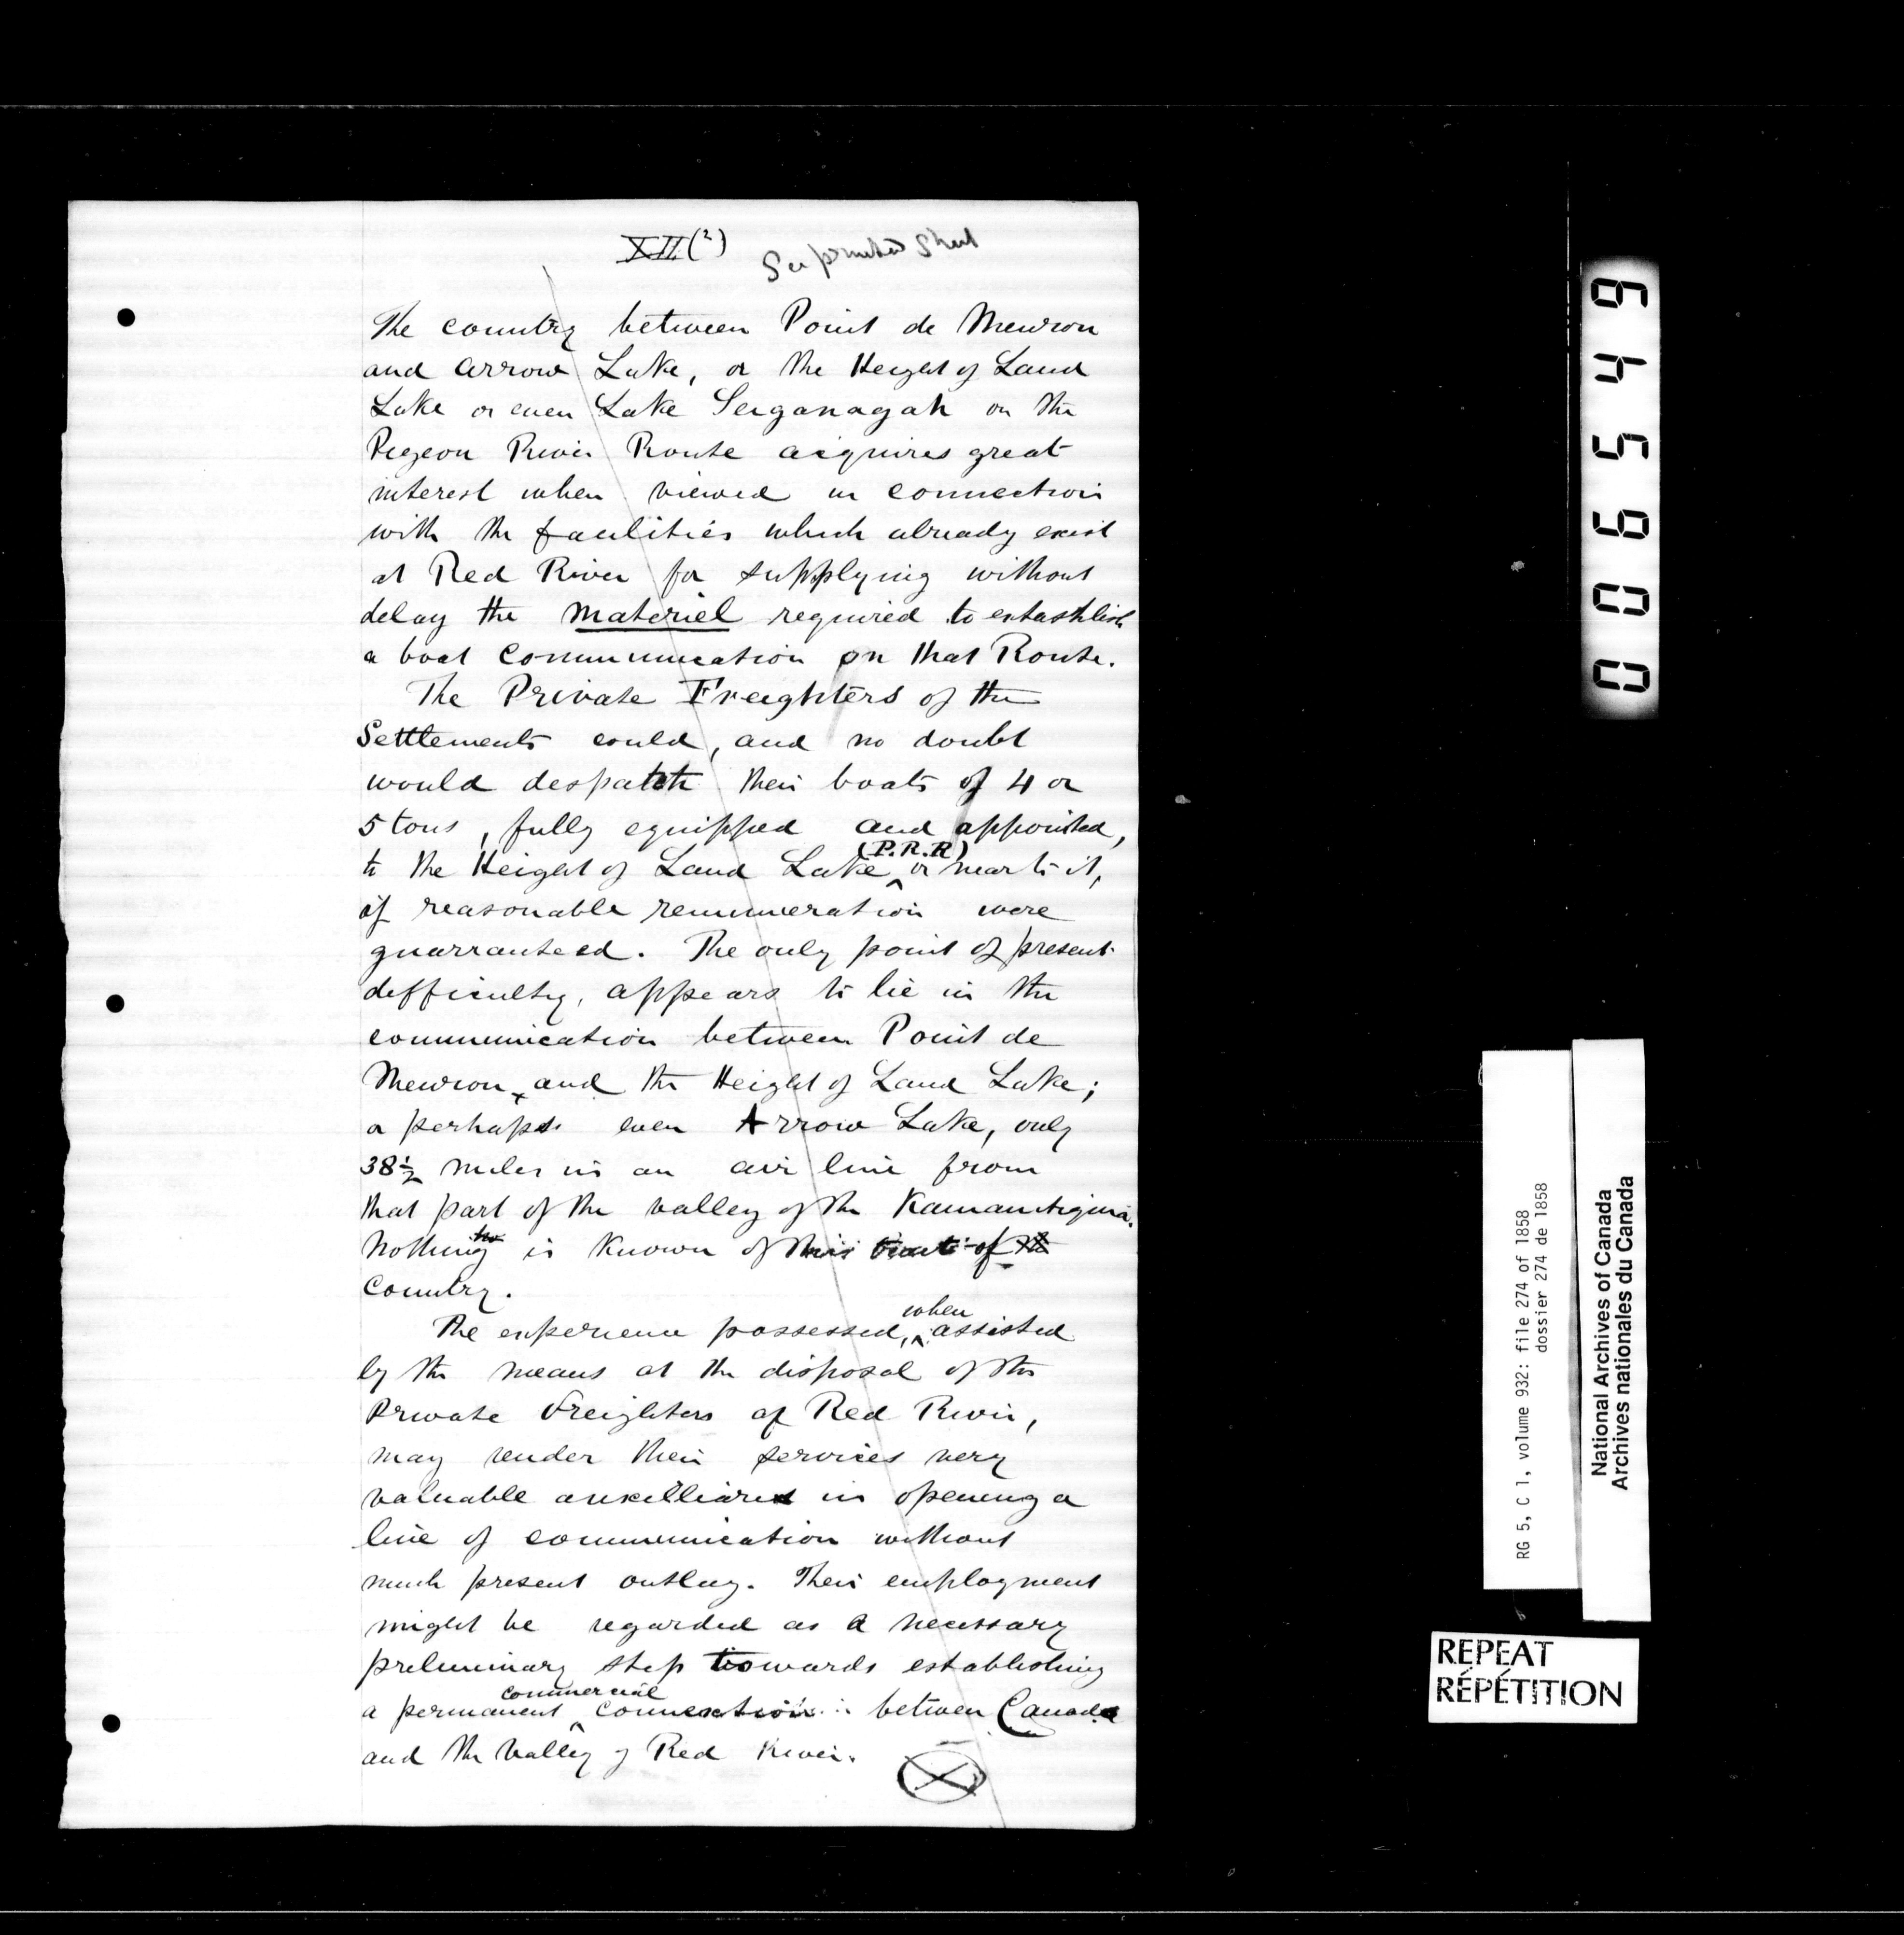 XII (2) See printed Sheet
The country between Point de Meuron
and Arrow Lake, or the Height of Land
Lake or even Lake Seiganagah on the
Pigeon River Route acquires great
interest when viewed in connection
with the facilities which already exist
at Red River for supplying without
delay the materiel required to establish
a boat communication on that Route.
The Private Freighters of the
Settlements could, and no doubt
would despatch their boats of 4 or
5 tons, fully equipped and appointed,
(P.R.R)
to the Height of Land Lake ^ or near to it,
if reasonable remuneration were
guarranteed. The only point of present
difficulty, appears to lie in the
communication between Point de
Meuron, and the Height of Land Lake;
or perhaps even Arrow Lake, only
38½ miles in an air line from
that part of the valley of the Kamanitiquia.
Nothing is known of this tract of
Country.
when
The experience possessed, ^ assisted
by the means at the disposal of the
Private Freighters of Red River,
may render their services very
valuable auxilliaries in opening a
line of communication without
much present outlay. Their employment
might be regarded as a necessary
preliminary step towards establishing
commercial
a permanent ^ connexion between Canada
and the Valley of Red River.
006549
RG 5, C 1, volume 932: file 274 of 1858
dossier 274 de 1858
National Archives of Canada
Archives nationales du Canada
REPEAT
RÉPÉTITION